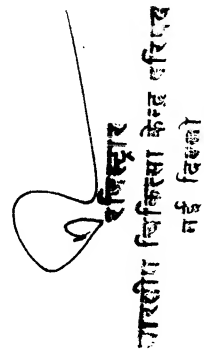 रजिस्ट्रार
भारतीय चिकित्सा केन्द्र परिषद
नई दिल्ली